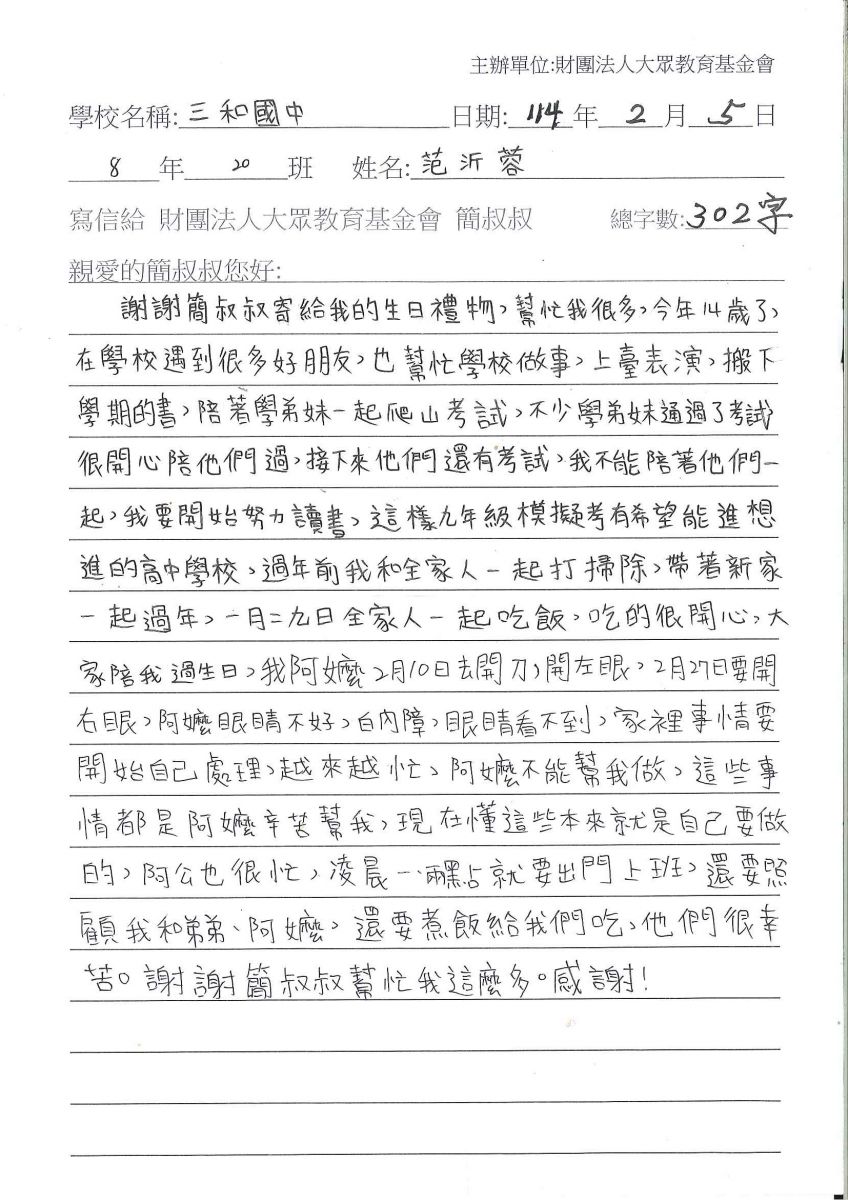 主辦單位:財團法人大眾教育基金會
學校名稱:三和國中 日期:114年2月5日
8年20班 姓名:范沂蓉
寫信給 財團法人大眾教育基金會 簡叔叔 總字數:302字
親愛的簡叔叔您好:
謝謝簡叔叔寄給我的生日禮物,幫忙我很多,今年14歲了,
在學校遇到很多好朋友,也幫忙學校做事,上臺表演,搬下
學期的書,陪著學弟妹一起爬山考試,不少學弟妹通過了考試
很開心陪他們過,接下來他們還有考試,我不能陪著他們一
起,我要開始努力讀書,這樣九年級模擬考有希望能進想
進的高中學校,過年前我和全家人一起打掃除,帶著新家
一起過年,一月二九日全家人一起吃飯,吃的很開心,大
家陪我過生日,我阿嬤2月10日去開刀,開左眼,2月27日要開
右眼,阿嬤眼睛不好,白內障,眼睛看不到,家裡事情要
開始自己處理,越來越忙,阿嬤不能幫我做,這些事
情都是阿嬤辛苦幫我,現在懂這些本來就是自己要做
的,阿公也很忙,凌晨一、兩點就要出門上班,還要照
顧我和弟弟、阿嬤,還要煮飯給我們吃,他們很辛
苦。謝謝簡叔叔幫忙我這麼多。感謝!